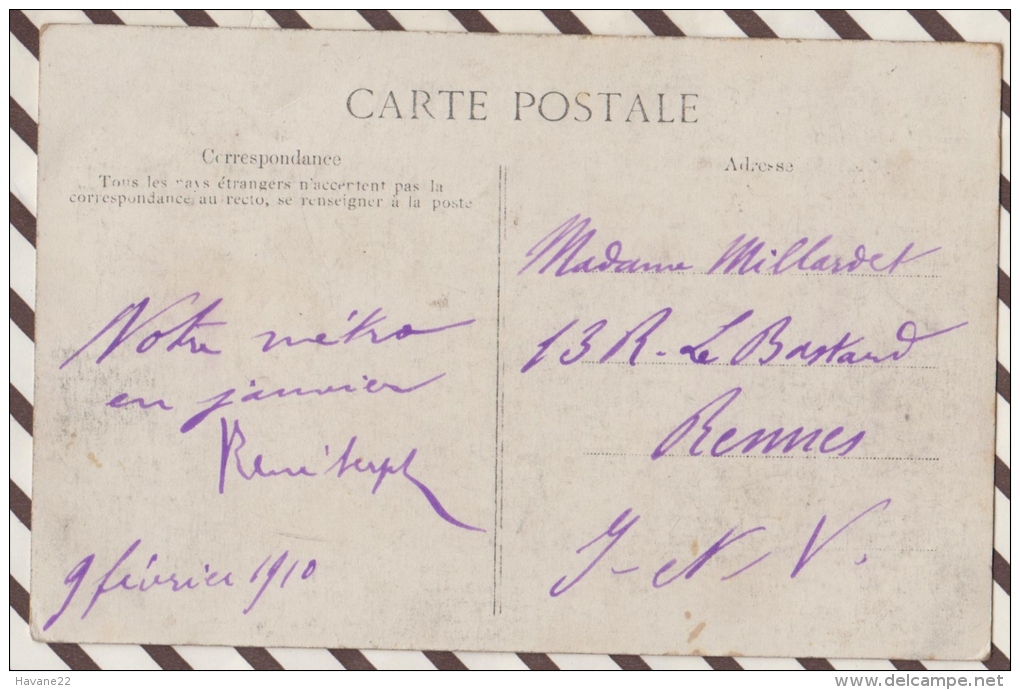 CARTE POSTALE
Correspondance
Tous les pays étrangers n'acceptent pas la
correspondance au recto, se renseigner à la poste
Notre métro
en janvier
René
9 février 1910
Adresse
Madame Millardet
13 R. Le Bastard
Rennes
I-et-V.
Havane22
delcampe.net